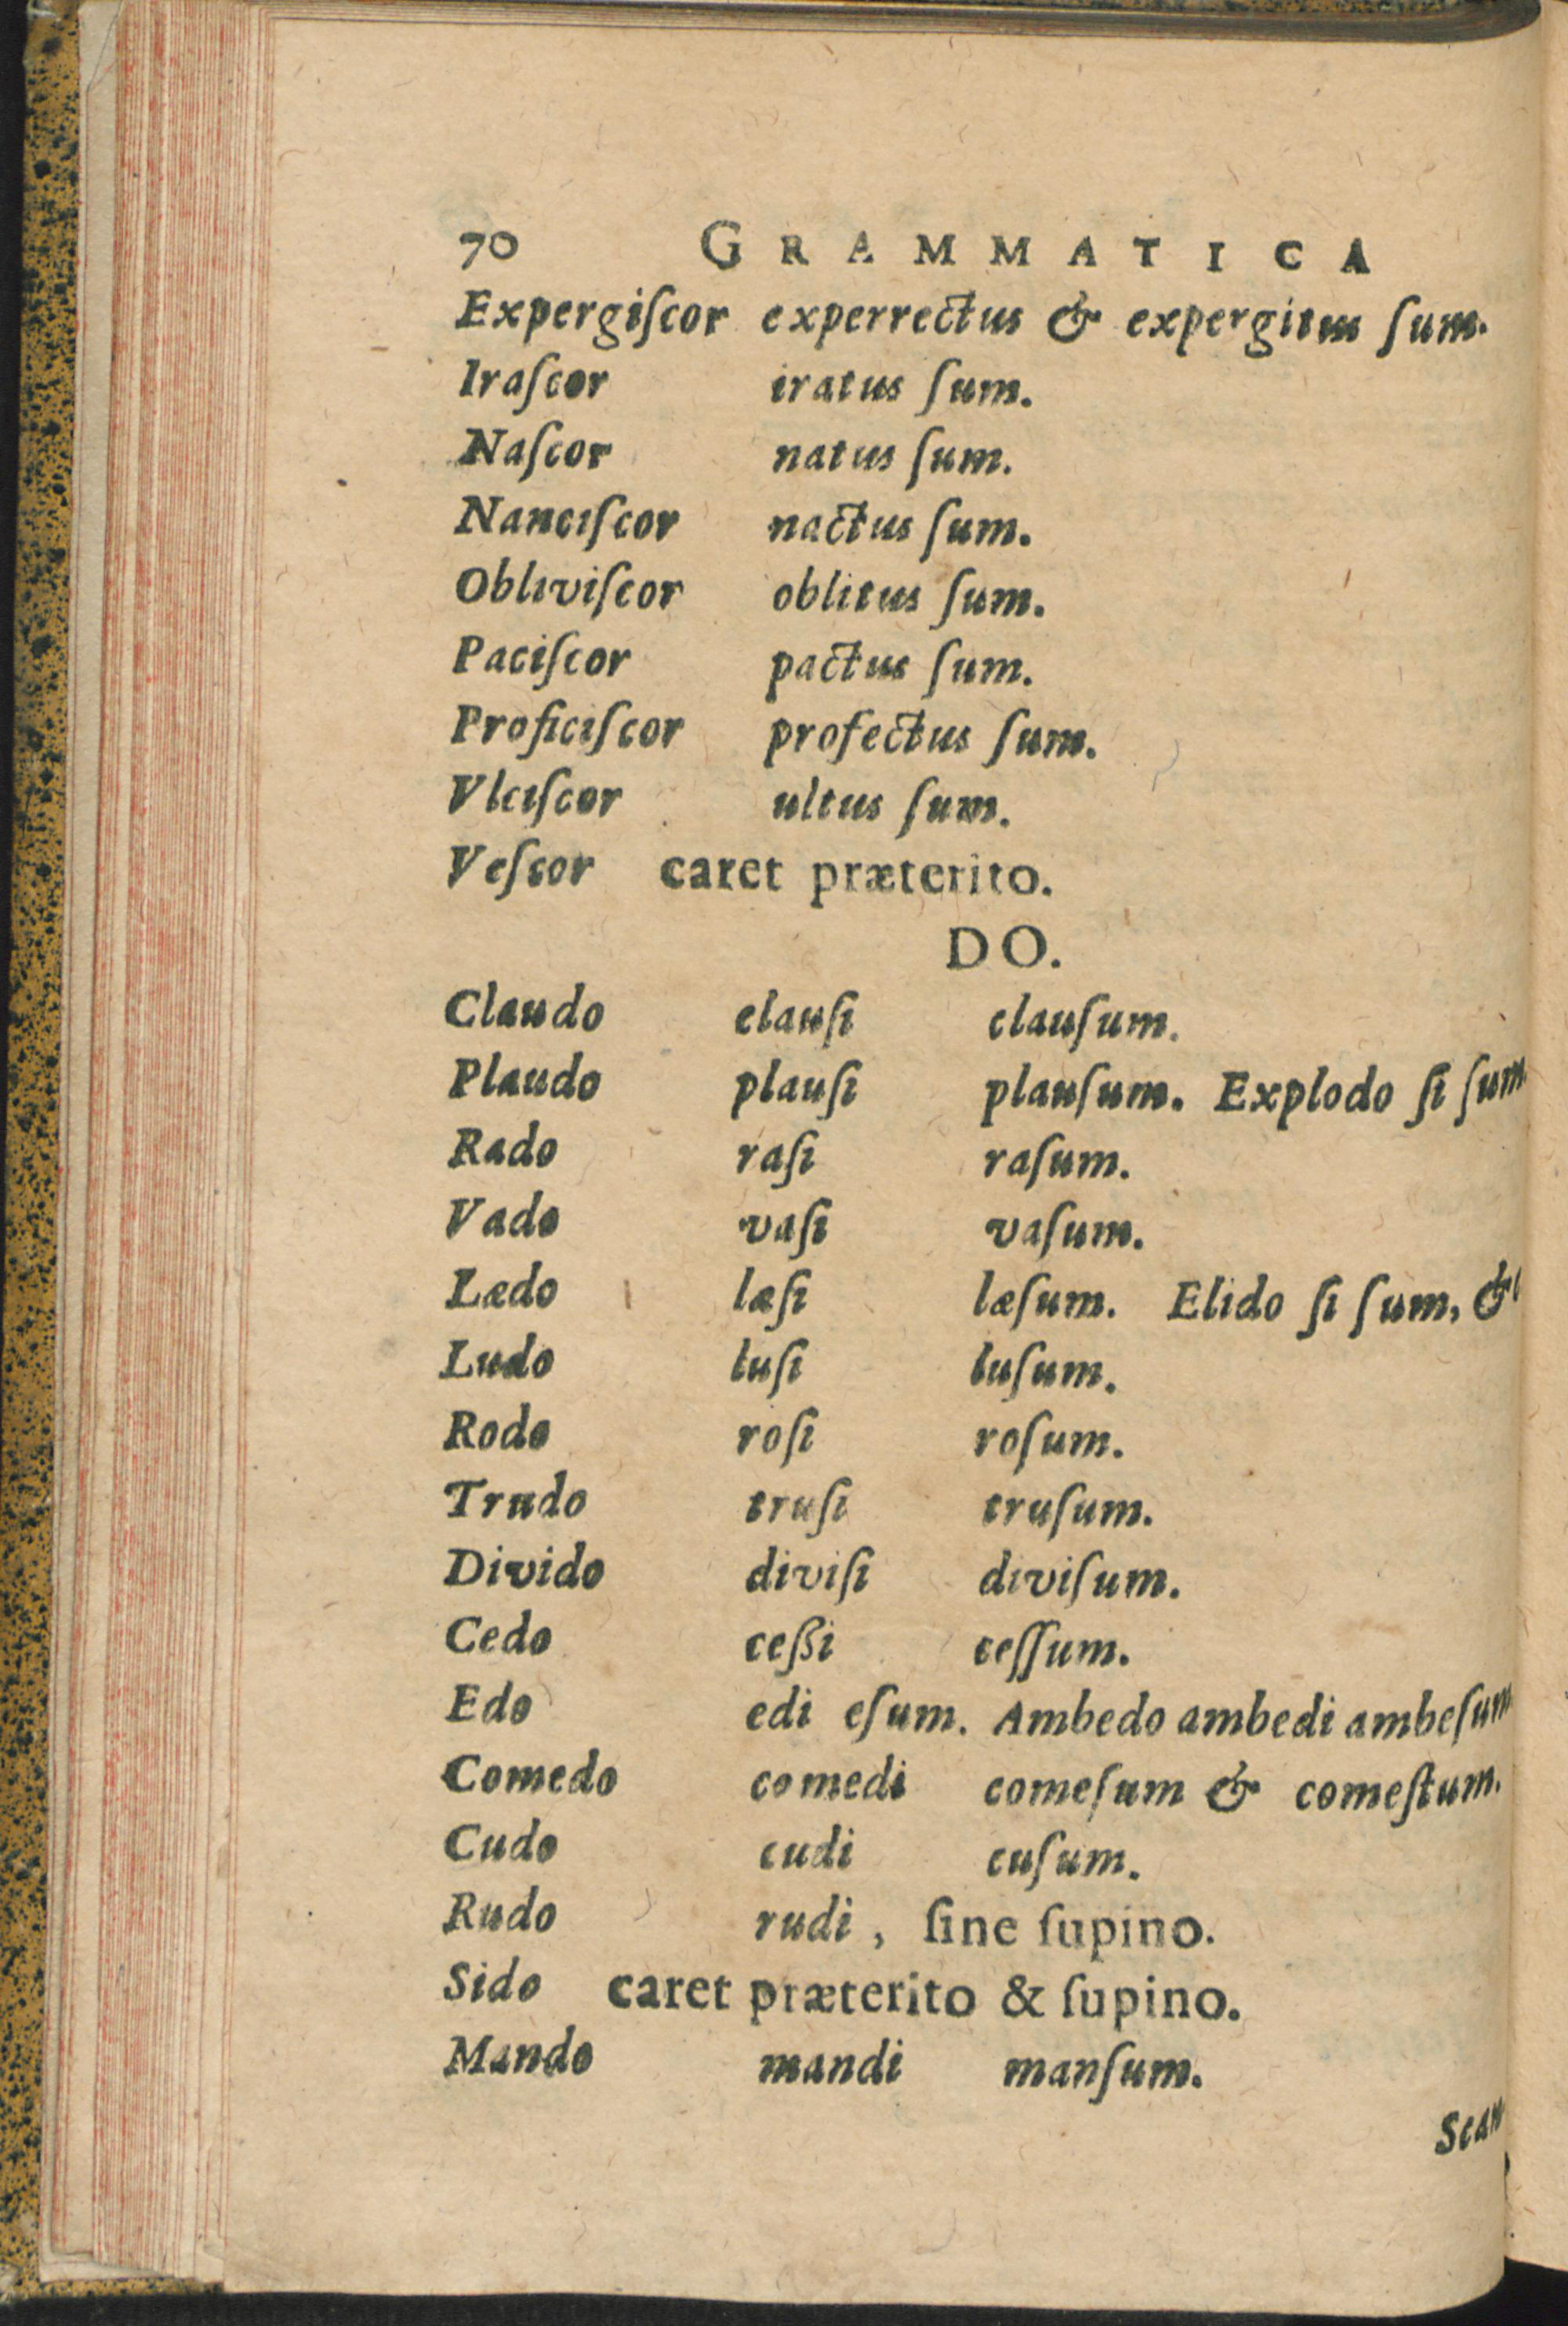 70 GRAMMATICA
Expergiſcor experrectus & expergitus ſum.
Iraſcor iratus ſum.
Naſcor natus ſum.
Nanciſcor nactus ſum.
Obliviſcor oblitus ſum.
Paciſcor pactus ſum.
Proficiſcor profectus ſum.
Vlciſcor ultus ſum.
Veſcor caret præterito.
DO.
Claudo clauſi clauſum.
Plaudo plauſi plauſum. Explodo ſi ſum
Rado raſi raſum.
Vado vaſi vaſum.
Lædo læſi læſum. Elido ſi ſum, &c
Ludo luſi luſum.
Rodo roſi roſum.
Trudo truſi truſum.
Divido diviſi diviſum.
Cedo ceßi ceſſum.
Edo edi eſum. Ambedo ambedi ambeſum
Comedo comedi comeſum & comeſtum.
Cudo cudi cuſum.
Rudo rudi, ſine ſupino.
Sido caret præterito & ſupino.
Mando mandi manſum.
Scan